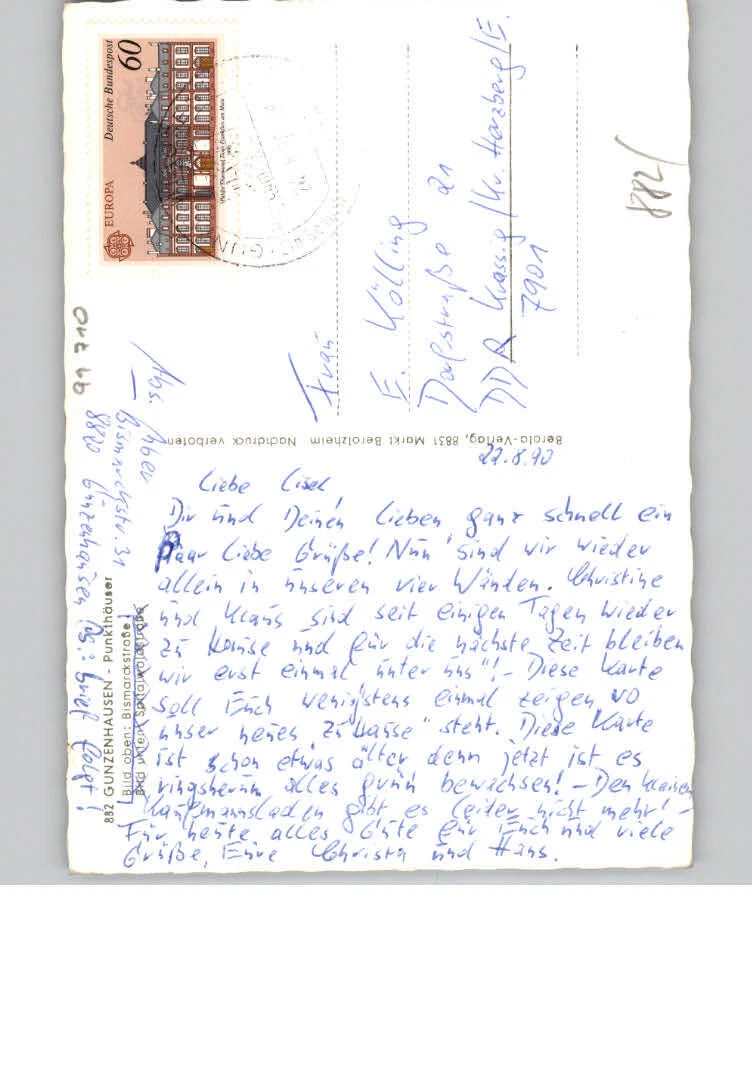 Deutsche Bundespost
60
EUROPA
8821
0170 66
Abs.
Bismarckstr. 31
8820 Gunzenhausen
Ps.: Brief folgt!
Frau
E. Kölling
21
DDR Krassig / Kr. Herzberg/E.
7901
Berota-Verlag, 8831 Markt Berolzheim Nachdruck verboten
882 GUNZENHAUSEN - Punkthäuser
Bild oben: Bismarckstraße
Bild unten:
22.8.90
Liebe Lisel
Dir und Deinen Lieben ganz schnell ein
paar liebe Grüße! Nun sind wir wieder
allein in unseren vier Wänden. Christine
und Klaus sind seit einigen Tagen wieder
zu Hause und für die nächste Zeit bleiben
wir erst einmal "unter uns"! - Diese Karte
soll Euch wenigstens einmal zeigen, wo
unser neues "Zuhause" steht. Diese Karte
ist schon etwas älter denn jetzt ist es
ringsherum alles grün bewachsen! - Den kleinen
Kaufmannsladen gibt es leider nicht mehr! -
Für heute alles Gute für Euch und viele
Grüße, Eure Christa und Hans.